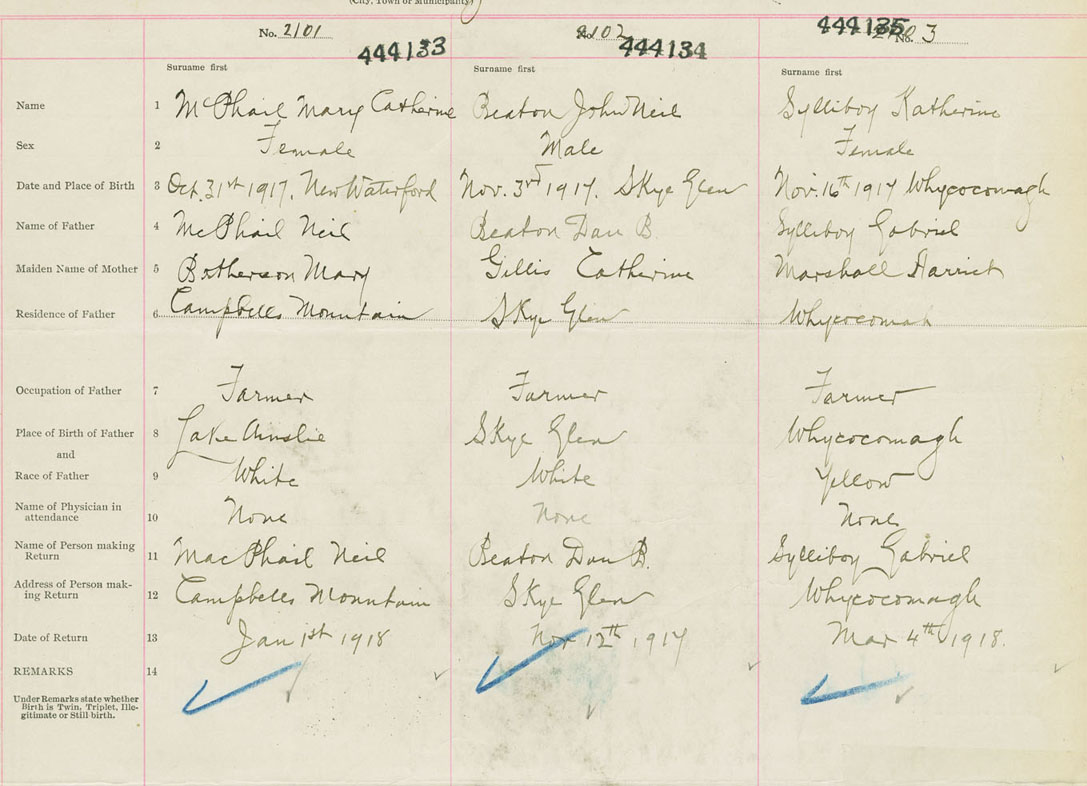 (City, Town or Municipality)
No. 2101 444133 No. 2102 444134 444135 No. 3
Surname first Surname first Surname first
Name 1 McPhail Mary Catherine Beaton John Neil Sylliboy Katherine
Sex 2 Female Male Female
Date and Place of Birth 3 Oct. 31st 1917. New Waterford Nov. 3rd 1917. Skye Glen Nov. 16th 1917 Whycocomagh
Name of Father 4 McPhail Neil Beaton Dan B. Sylliboy Gabriel
Maiden Name of Mother 5 Mary Gillis Catherine Marshall Harriet
Residence of Father 6 Campbells Mountain Skye Glen Whycocomah
Occupation of Father 7 Farmer Farmer Farmer
Place of Birth of Father 8 Lake Ainslie Skye Glen Whycocomagh
and
Race of Father 9 White White Yellow
Name of Physician in
attendance 10 None None None
Name of Person making
Return 11 MacPhail Neil Beaton Dan B. Sylliboy Gabriel
Address of Person mak-
ing Return 12 Campbells Mountain Skye Glen Whycocomagh
Date of Return 13 Jan 1st 1918 Nov 12th 1917 Mar 4th 1918.
REMARKS 14
Under Remarks state whether
Birth is Twin, Triplet, Ille-
gitimate or Still-birth.